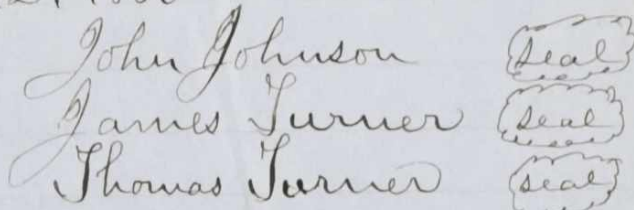 John Johnson seal
James Turner seal
Thomas Turner seal